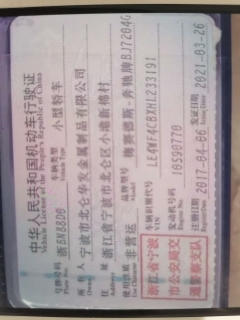 中华人民共和国机动车行驶证
Vehicle License of the People's Republic of China
号牌号码 浙BN8800 车辆类型 小型轿车
Plate No. Vehicle Type
所有人 宁波市北仑华发金属制品有限公司
Owner
住址 浙江省宁波市北仑区小港新棉村
Address
使用性质 非营运 品牌型号 梅赛德斯-奔驰牌BJ7204G
Use Character Model
浙江省宁波
市公安局交
通警察支队
车辆识别代号 LE4WF4CBXHL233191
VIN
发动机号码 10590770
Engine No.
注册日期 2017-04-06 发证日期 2021-03-26
Register Date Issue Date